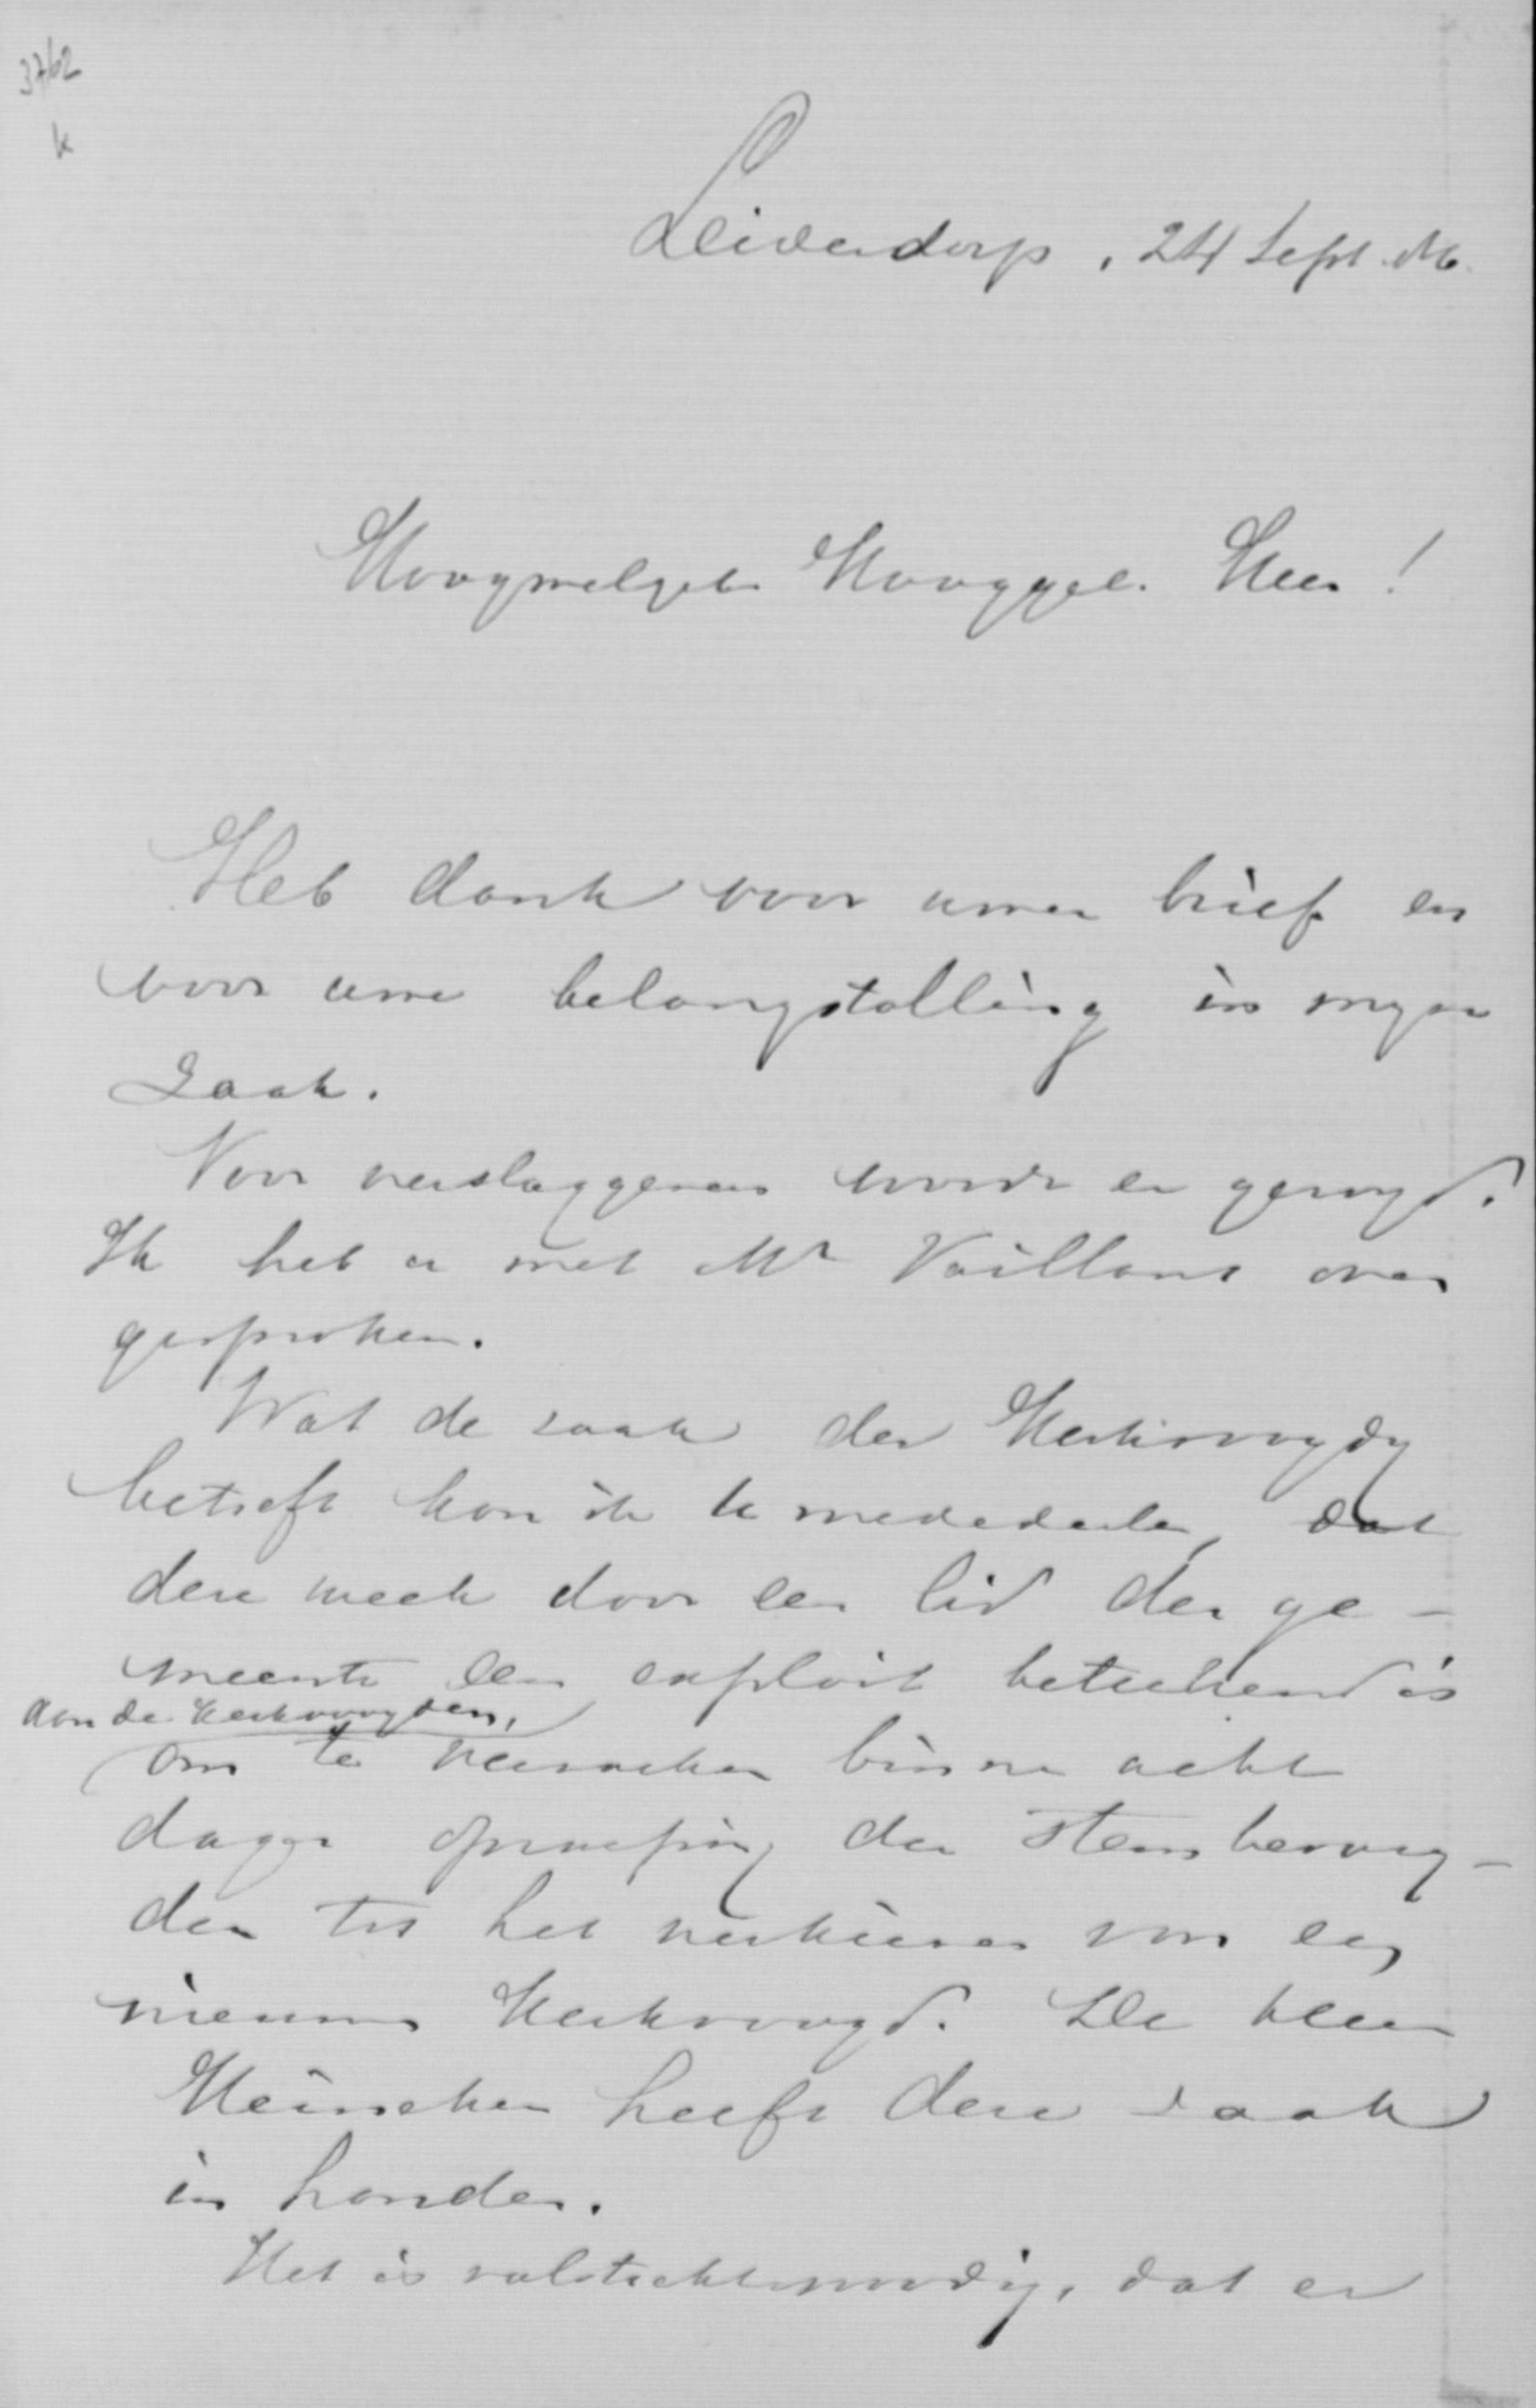 3762
k
Leiderdorp, 24 Sept. 86.
Hoogwelgeb. Hooggel. Heer!
Heb dank voor uwen brief en
voor uwe belangstelling in myne
zaak.
Voor verslaggevers wordt er gezorgd.
Ik heb er met Mr Vaillant over
gesproken.
Wat de zaak der Kerkvoogdy
betreft kan ik u mededeelen, dat
deze week door een lid der ge-
meente een exploit beteekend is
aan de Kerkvoogden,
om te verzoeken binnen acht
dagen oproeping der stembevoeg-
den tot het verkiezen van een
nieuwen Kerkvoogd. De heer
heeft deze zaak
in handen.
Het is volstrekt noodig, dat er